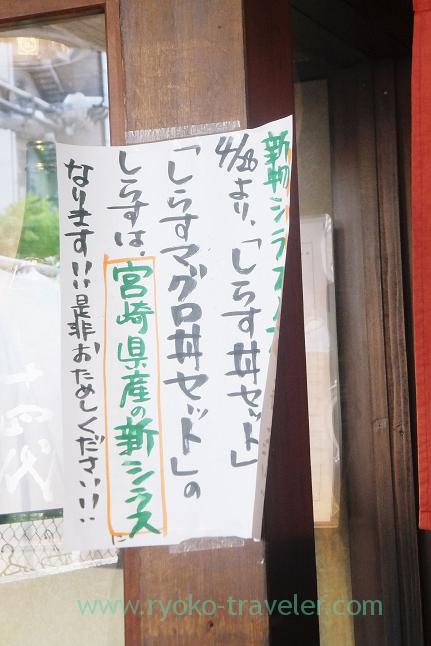 新物シラス入
4/28より、「しらす丼セット」
「しらすマグロ丼セット」の
しらすは、宮崎県産の新シラスに
なります!!是非おためしください!!
www.ryoko-traveler.com